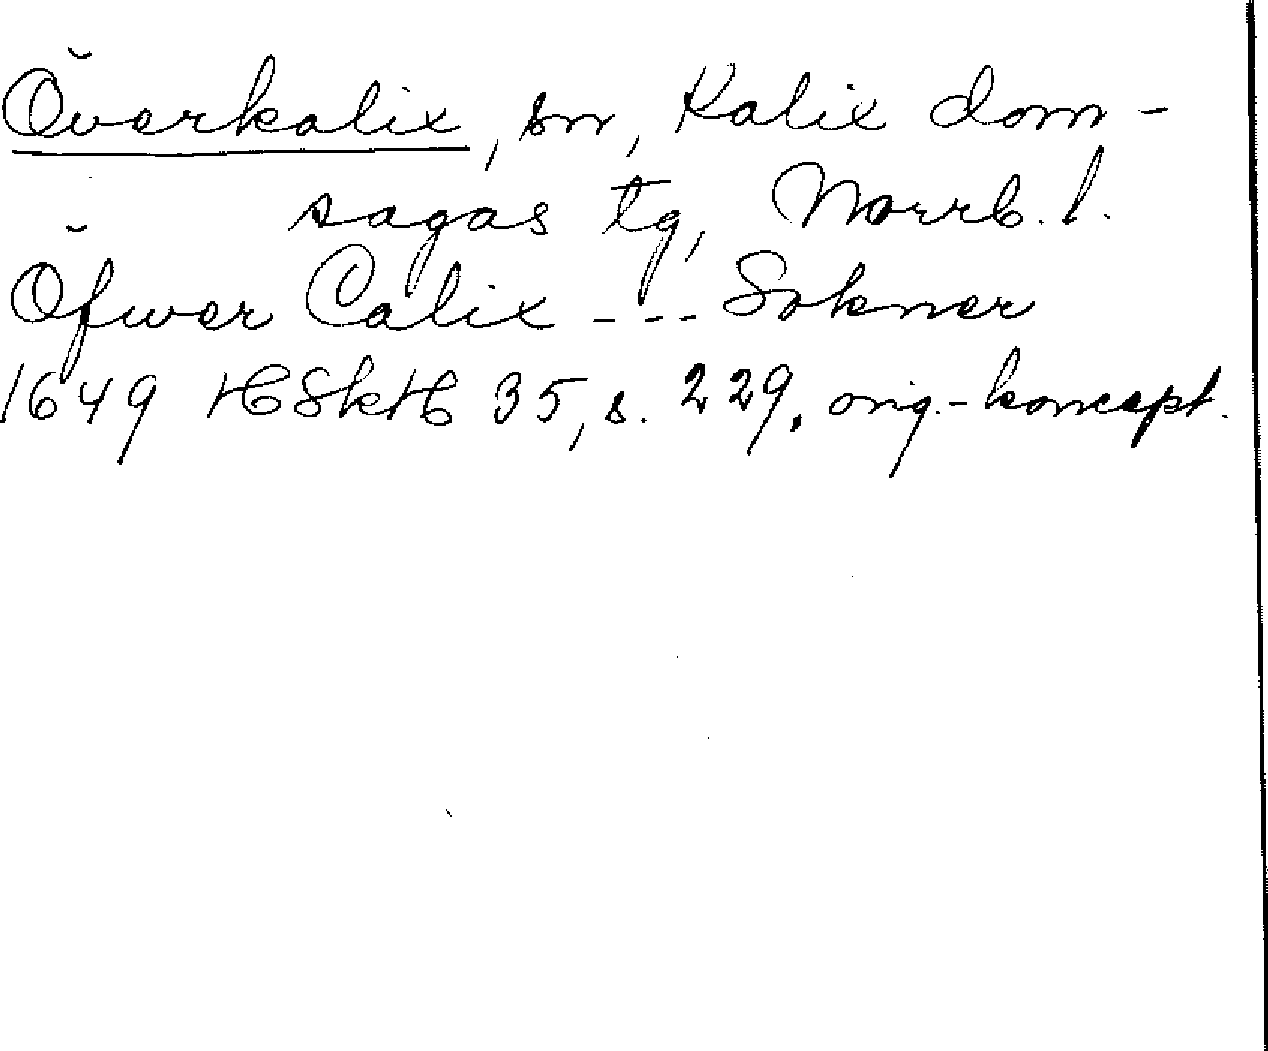 Överkalix, sn, Kalix dom-
sagas tg, Norrb. l.
Öfwer Calix --- Sokner
1649 HSkH 35, s. 229, orig.-koncept.